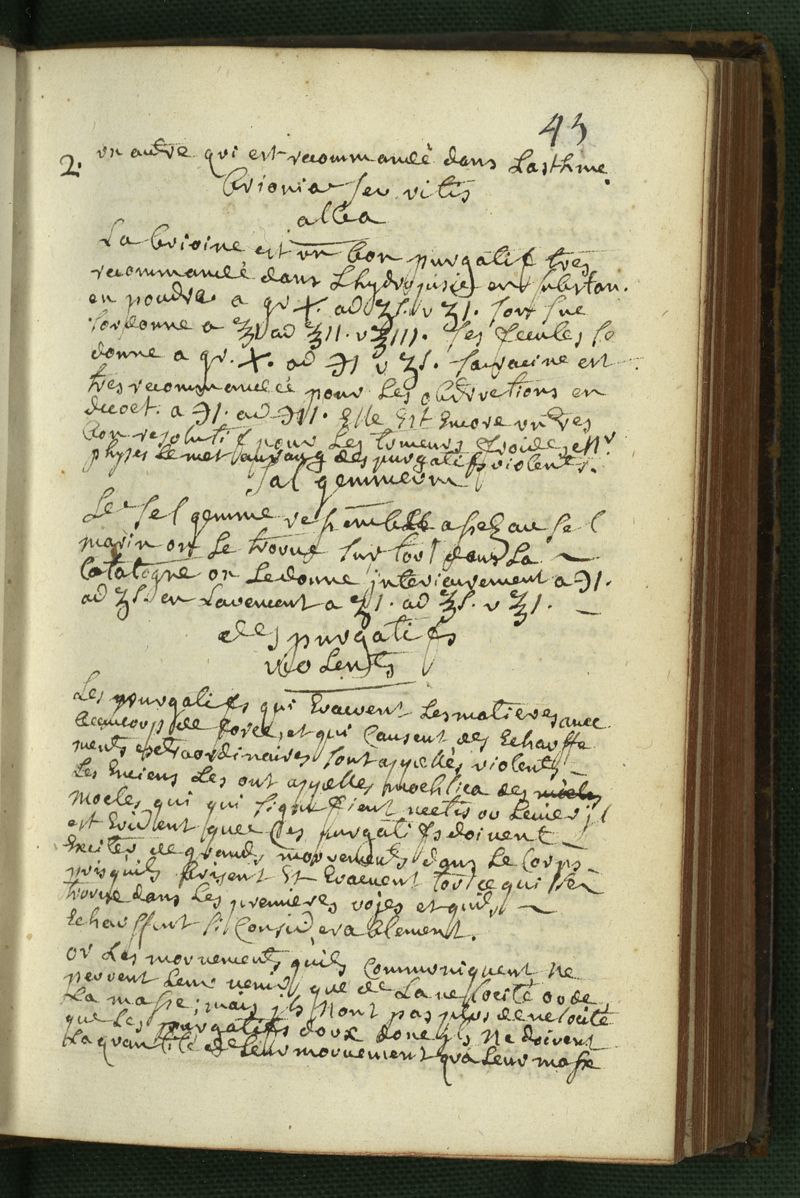 43
2. un autre qui est recommandé dans Lasthme.
brionia seu vitis
alba
La brioine est un bon purgatif tres
recommandé dans Lhydropisie en substan.
en poudre a gr X. ad ʒs. v ʒ1. son suc
sordonne a ℥1 ad ℥11. v ℥111. ses fecules se
donne a gr. X. ad ℈1 v ʒs. sa racine est
tres recommandéé pour Les obstructions en
decoct. a ℈1. ad ℈11. Elle Est Encore un tres
bon resolutif pour Les tumeurs froides Mr
physes Le met au rang des purgatifs violents.
Sal gemmeum
Le sel gemme resemble assez au sel
marin on Le trouve sur tout dans La
Catalogne on Le donne interieurement a ℈1.
ad ʒs. en Lavement a ʒ1. ad ℥s. v ℥1.
des purgatifs
violents
Les purgatifs qui Evacuent Les matieres avec
beaucoup de force, et qui Causent des Echauffe
ments extraordinaires sont appellés violents
Les Enciens Les ont appellés moehlica de
mocles qui qui signifient vectis ou Levier jl
est Evident que Ces purgatifs doivent
Exciter de grands mouvements dans Le Corps
puisquils brisent Et Evacuent tout ce qui se
trouve dans Les premieres vojes et quils
Echauffent si Considerablement.
or Les mouvements quils Communiquent Ne
peuvent Leur venir que de La velocité ou de
La masse; mais jls Nont pas plus de velocité
que Les purgatifs doux donc jls Ne doivent
La quantité de Leur mouvement qua Leur masse